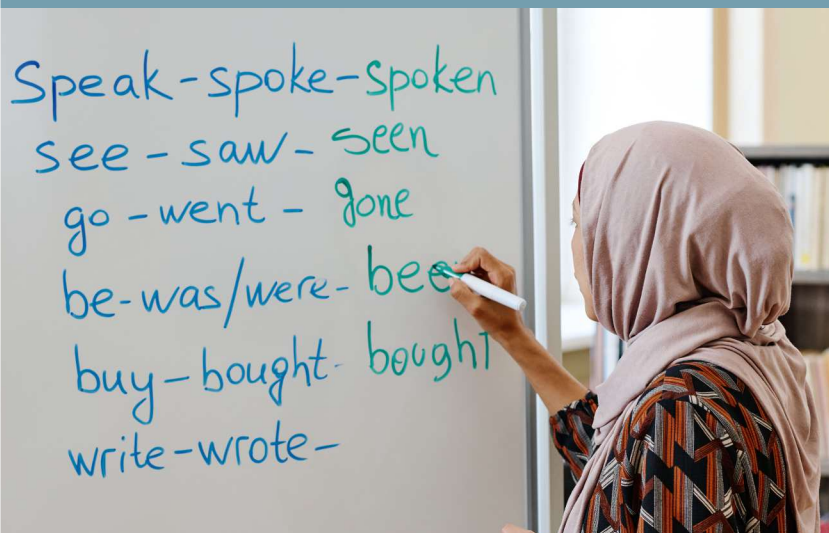 Speak-spoke-spoken
see - saw - seen
go - went - gone
be-was/were- bee
buy-bought- bought
write-wrote-